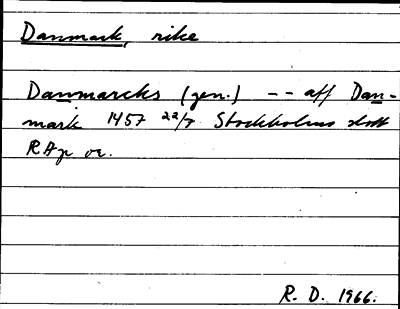 Danmark, rike
Danmarcks (gen.) -- aff Dan-
mark 1457 22/7 Stockholms slott
RAp or.
R. D. 1966.